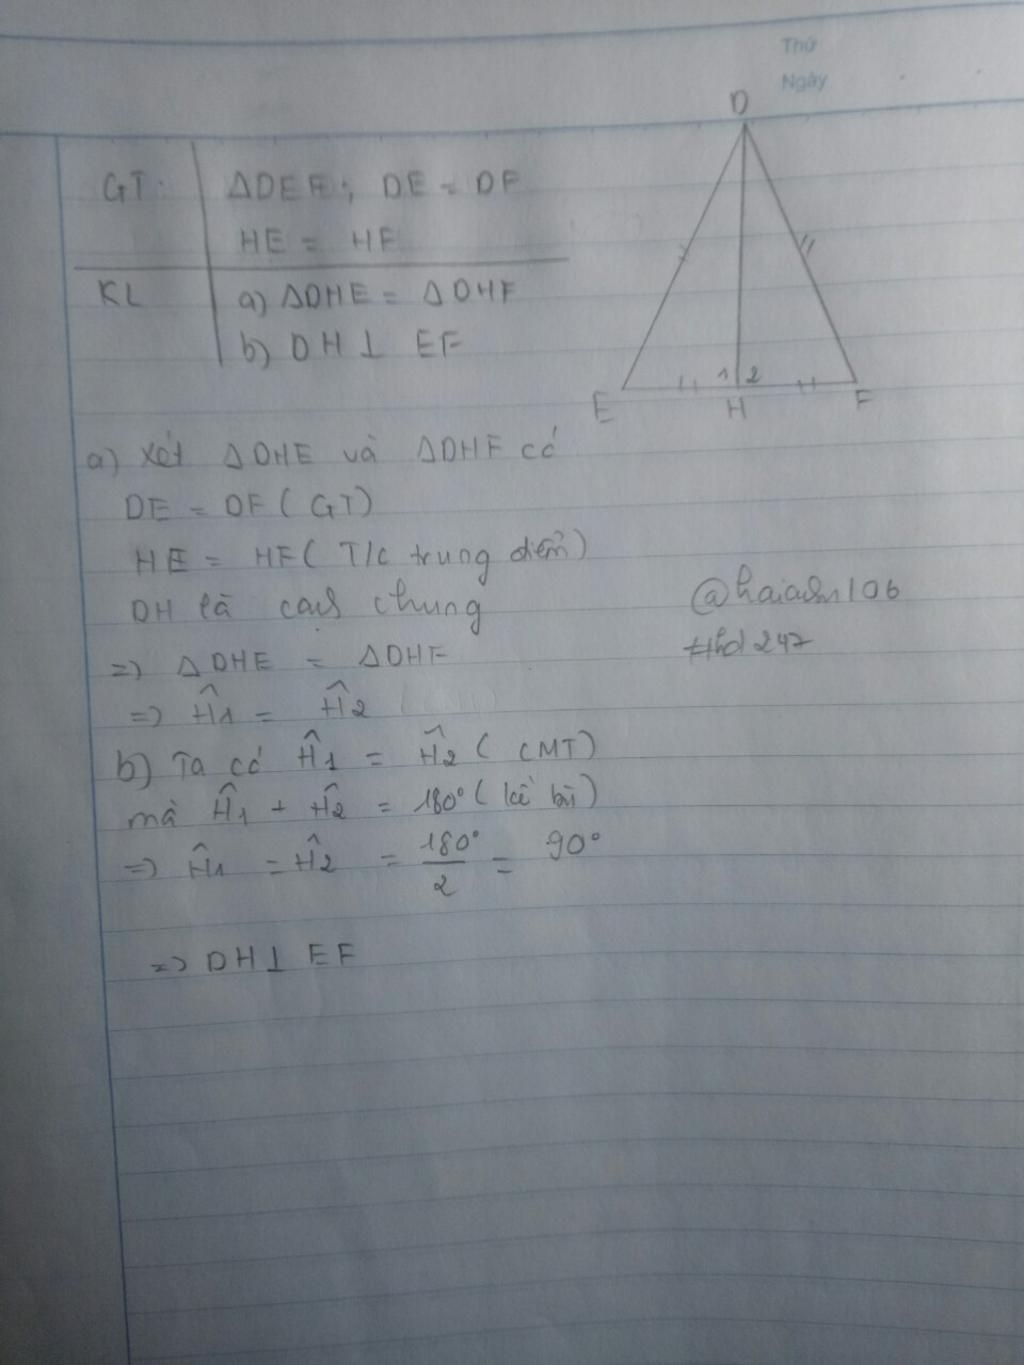 Thứ
Ngày
D
GT: ΔDEF; DE = DF
HE = HF
KL a) ΔDHE = ΔDHF
b) DH ⊥ EF
1 2
E H F
a) Xét ΔDHE và ΔDHF có
DE = DF (GT)
HE = HF (T/c trung điểm)
DH là cạnh chung
=> ΔDHE = ΔDHF
=> Ĥ1 = Ĥ2
b) Ta có Ĥ1 = Ĥ2 (CMT)
mà Ĥ1 + Ĥ2 = 180° (kề bù)
=> Ĥ1 = Ĥ2 = 180°/2 = 90°
=> DH ⊥ EF
@haianh106
#hd247